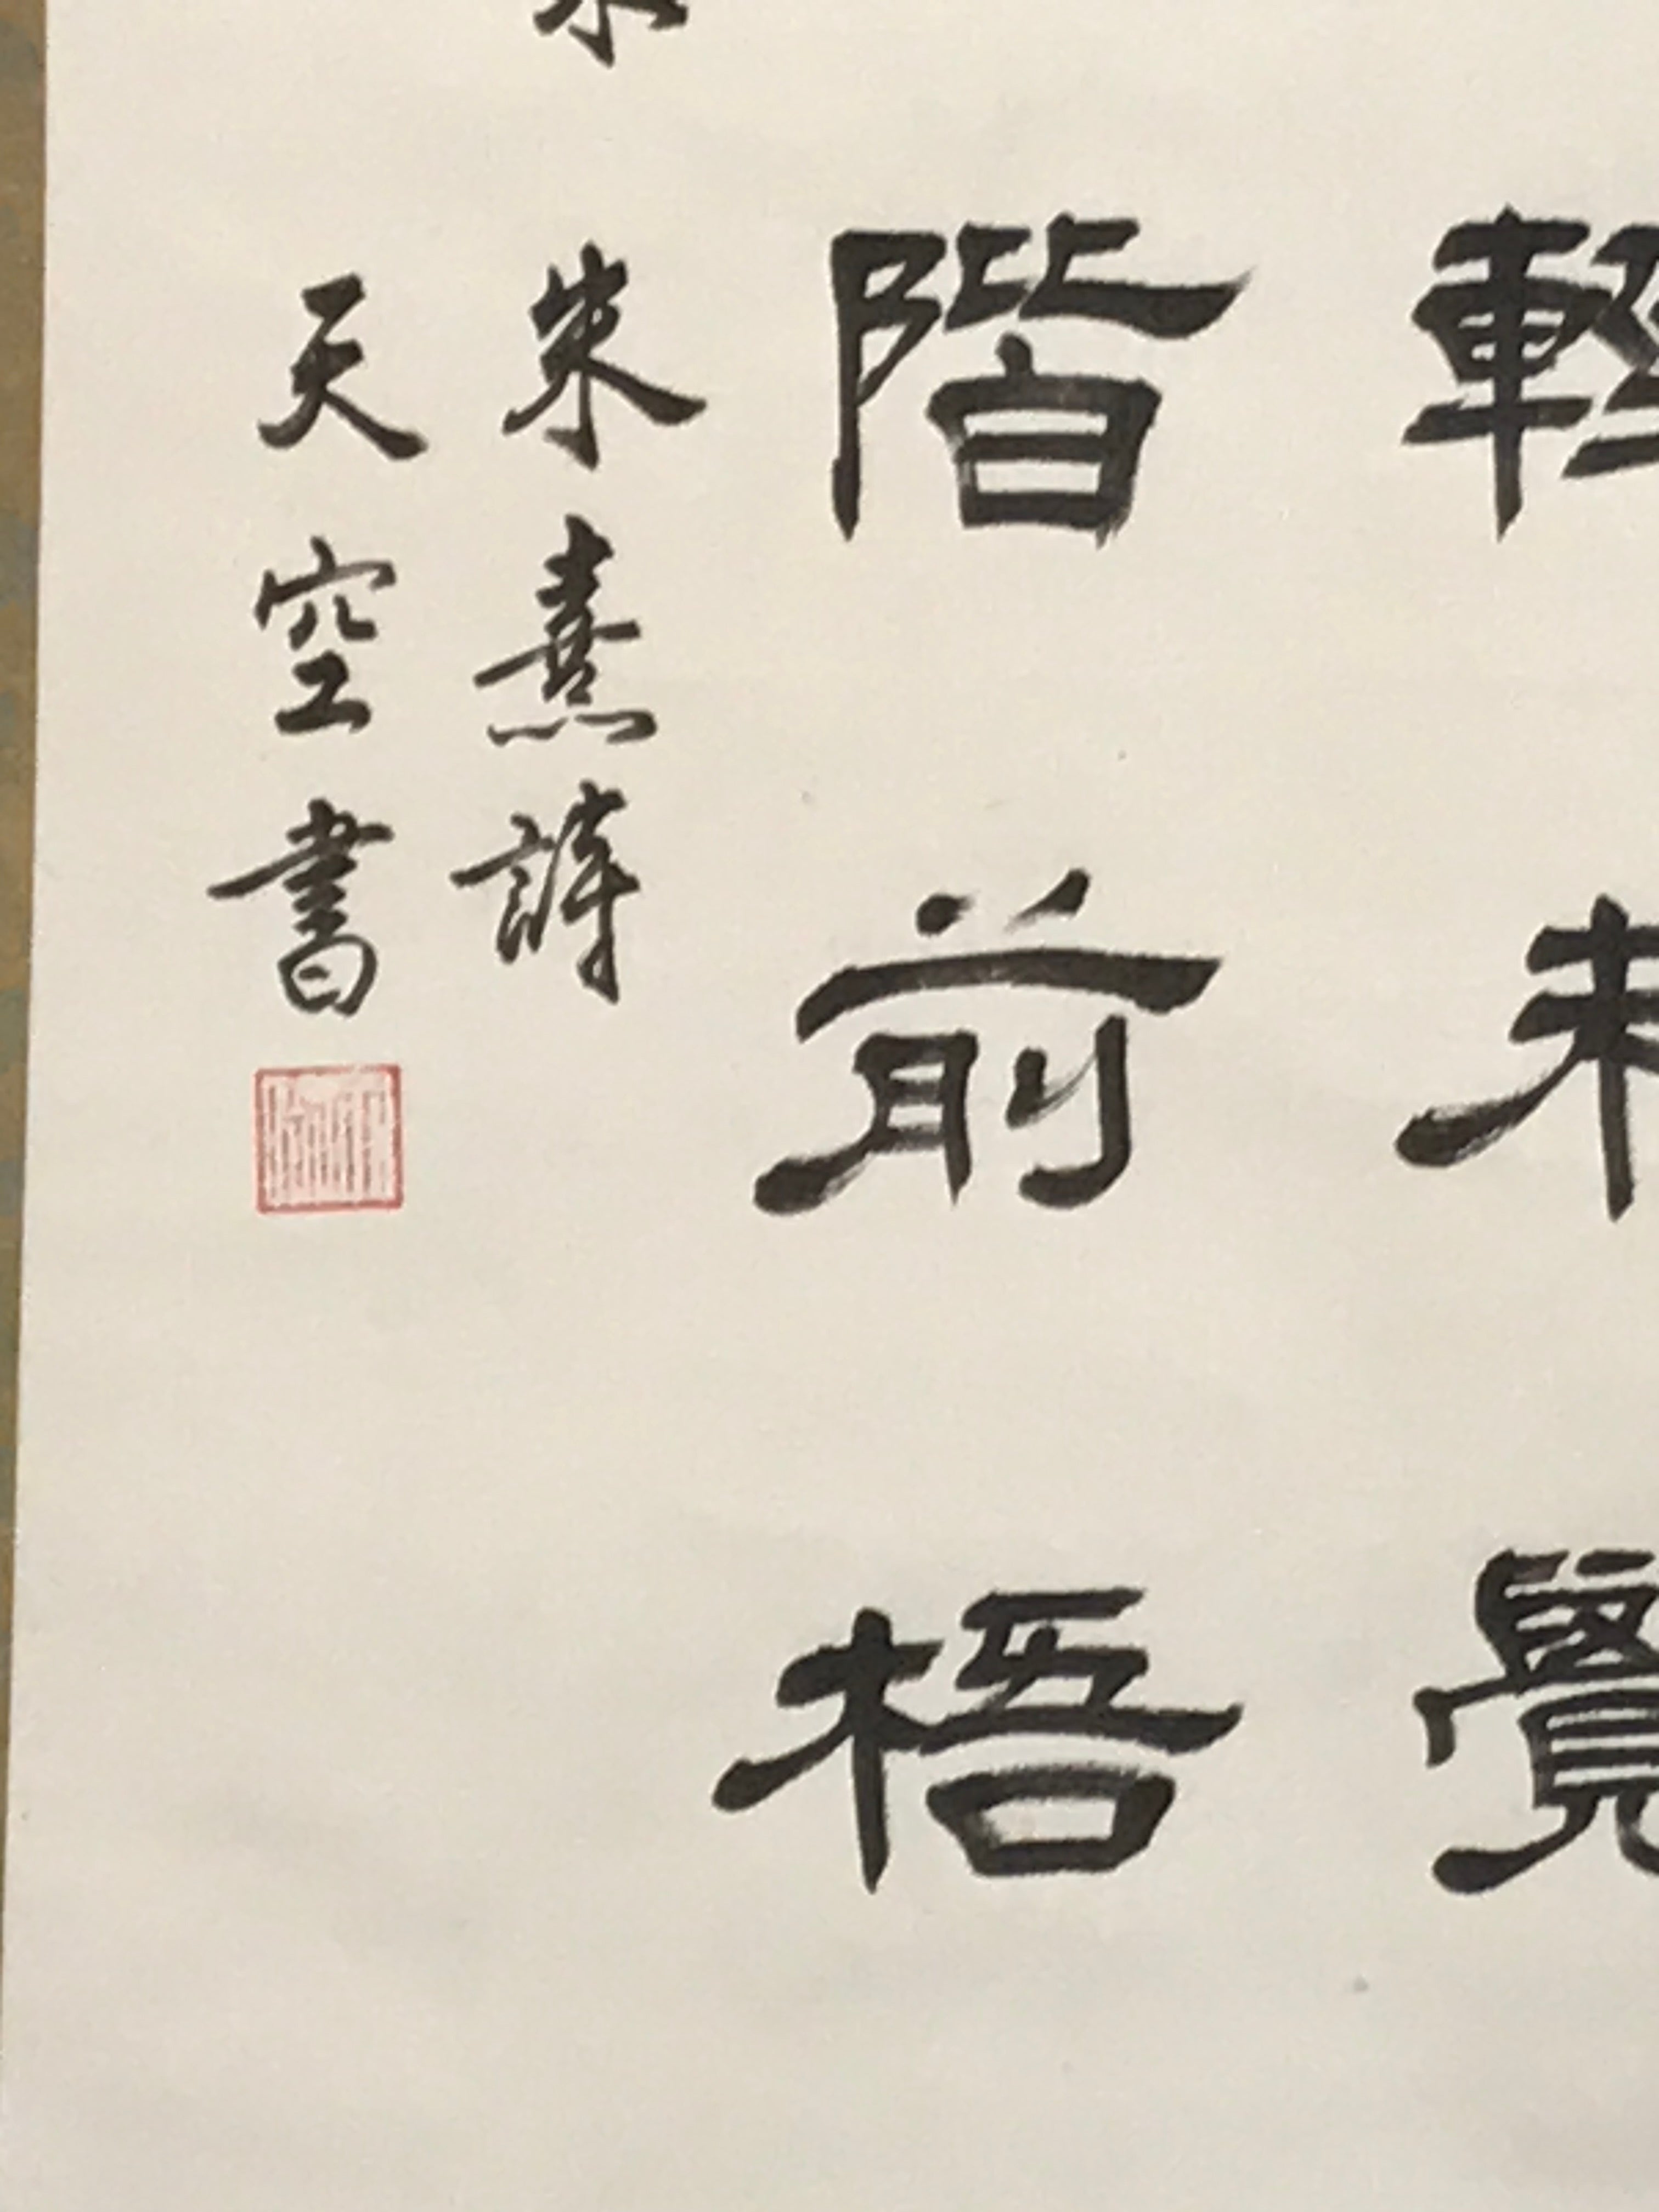 輕未覺
階前梧
朱熹詩
天空書